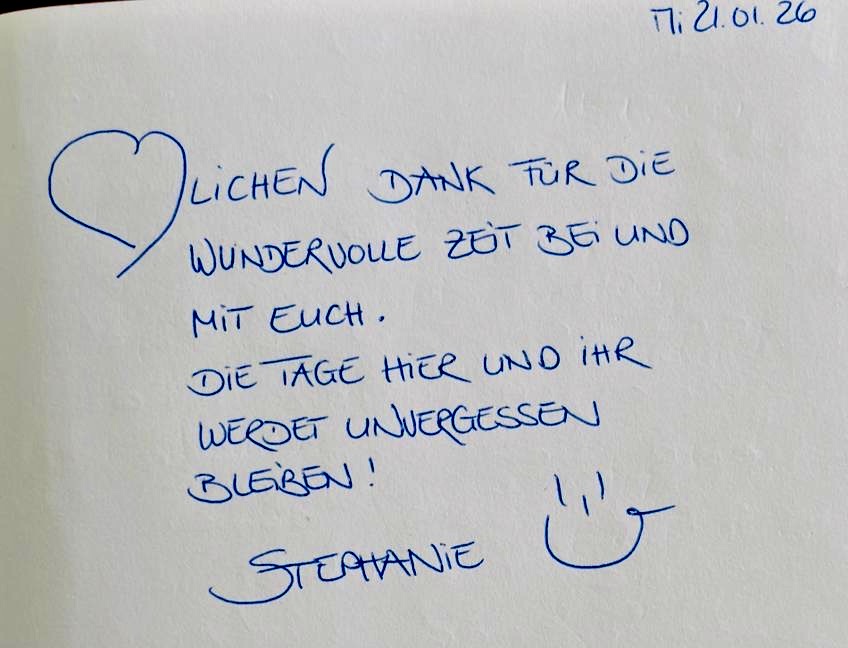 Mi 21.01.26
LiCHEN DANK FÜR DiE
WUNDERVOLLE ZEiT BEi UND
MiT EUCH.
DiE TAGE HiER UND iHR
WERDET UNVERGESSEN
BLEiBEN!
STEPHANiE